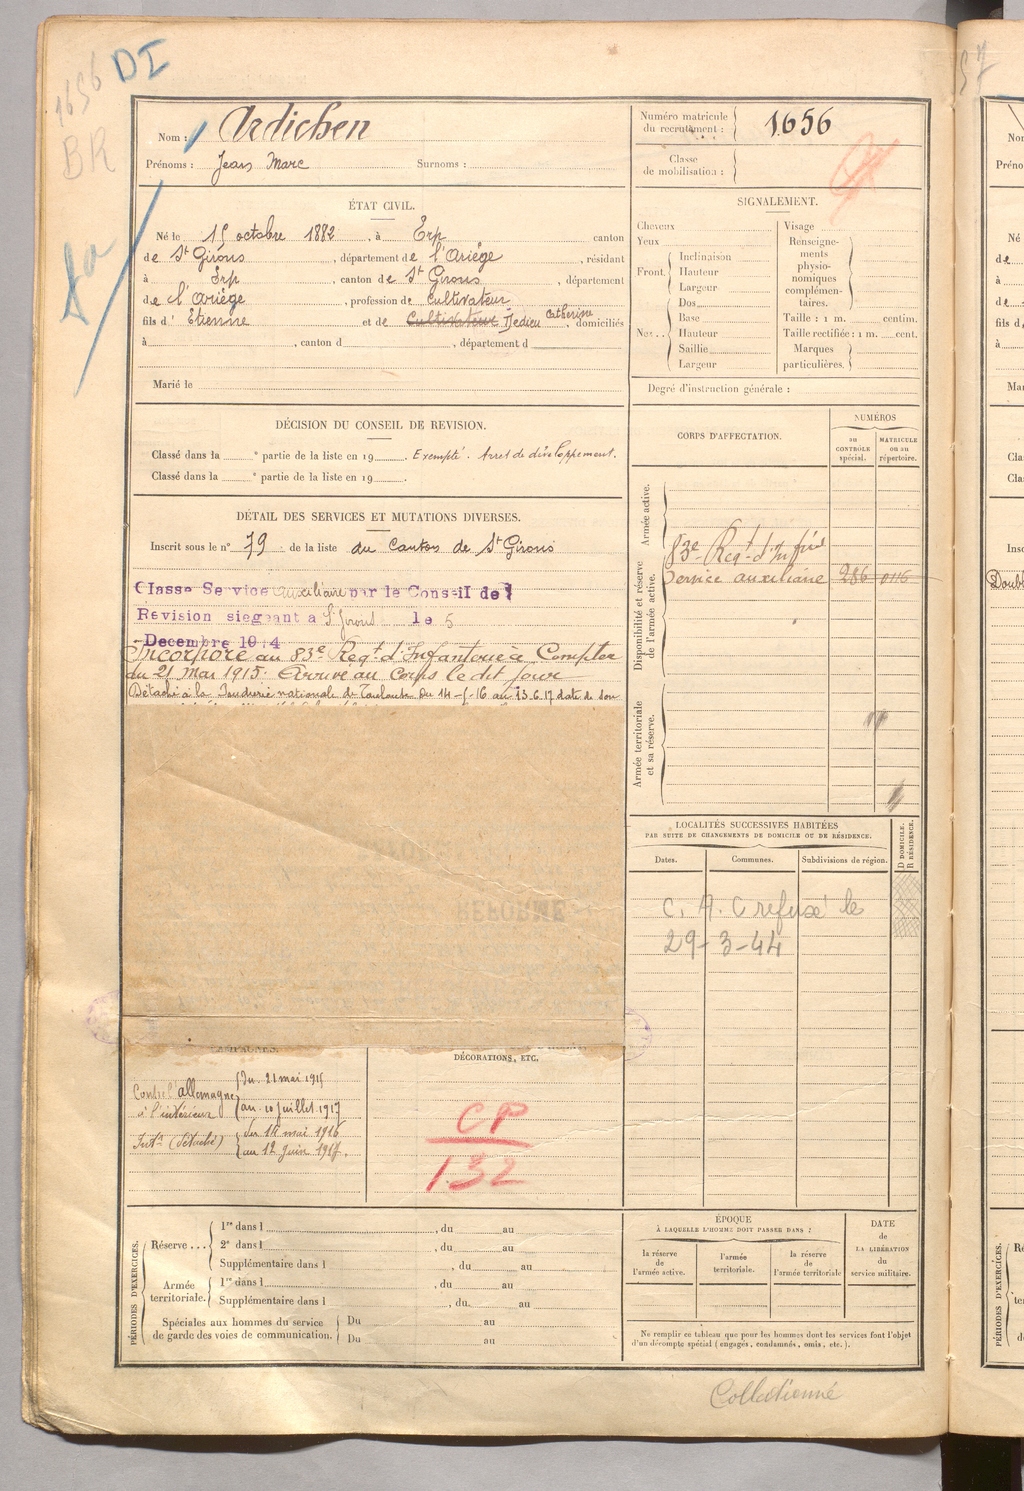 1656 DI
BR
Nom : Ardichen
Prénoms : Jean Marc Surnoms :
Numéro matricule du recrutement : 1656
Classe de mobilisation :
ÉTAT CIVIL.
Né le 15 octobre 1882, à Erp canton
de St Girons, département de l'Ariège, résidant
à Erp, canton de St Girons, département
de l'Ariège, profession de Cultivateur
fils d' Etienne et de Cultivateur Dedieu Catherine, domiciliés
à , canton d , département d
Marié le
SIGNALEMENT.
Cheveux
Yeux
Front. Inclinaison
Hauteur
Largeur
Nez... Dos
Base
Hauteur
Saillie
Largeur
Visage
Renseignements physionomiques complémentaires.
Taille : 1 m. centim.
Taille rectifiée : 1 m. cent.
Marques particulières.
Degré d'instruction générale :
DÉCISION DU CONSEIL DE REVISION.
Classé dans la e partie de la liste en 19 . Exempté. Arret de développement.
Classé dans la e partie de la liste en 19 .
DÉTAIL DES SERVICES ET MUTATIONS DIVERSES.
Inscrit sous le n° 79 de la liste du Canton de St Girons
Classe Service auxiliaire par le Conseil de
Revision siegeant a St Girons le 5
Decembre 1914
Incorporé au 83e Regt d'Infanterie à Compter
du 21 Mai 1915. Arrivé au Corps le dit jour
Détaché à la Poudrerie nationale de Toulouse du 14-5-16 au 13.6.17 date de son
REFORME
CORPS D'AFFECTATION.
NUMÉROS
au CONTRÔLE spécial.
MATRICULE ou au répertoire.
Armée active.
Disponibilité et réserve de l'armée active.
83e Regt d'Infrie
Service auxiliaire 286 0116
Armée territoriale et sa réserve.
LOCALITÉS SUCCESSIVES HABITÉES
PAR SUITE DE CHANGEMENTS DE DOMICILE OU DE RÉSIDENCE.
Dates. Communes. Subdivisions de région.
D DOMICILE.
R RÉSIDENCE.
C. A. C refusé le
29-3-44
CAMPAGNES.
Contre l'allemagne
à l'intérieur
Du 21 mai 1915
au 10 juillet 1917
Intr (Détaché)
du 14 mai 1916
au 12 Juin 1917.
DÉCORATIONS, ETC.
CP
132
PÉRIODES D'EXERCICES.
Réserve ... 1re dans l , du au
2e dans l , du au
Supplémentaire dans l , du au
Armée territoriale. 1re dans l , du au
Supplémentaire dans l , du au
Spéciales aux hommes du service de garde des voies de communication. Du au
Du au
ÉPOQUE
À LAQUELLE L'HOMME DOIT PASSER DANS :
la réserve de l'armée active.
l'armée territoriale.
la réserve de l'armée territoriale
DATE
de
LA LIBÉRATION
du
service militaire.
Ne remplir ce tableau que pour les hommes dont les services font l'objet
d'un décompte spécial (engagés, condamnés, omis, etc.).
Collationné